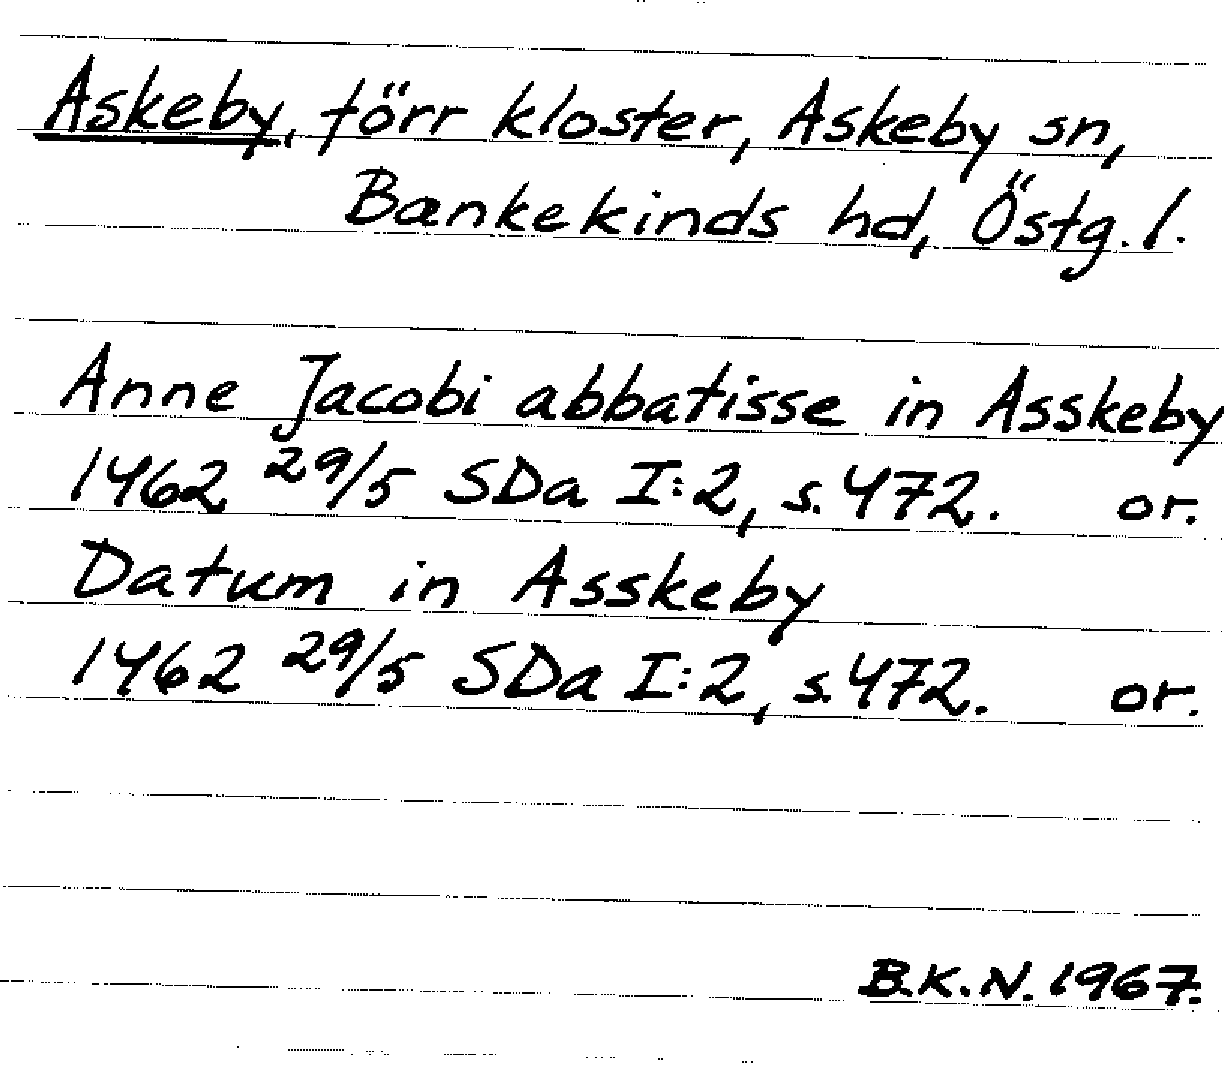 Askeby, förr kloster, Askeby sn,
Bankekinds hd, Östg. l.
Anne Jacobi abbatisse in Asskeby
1462 29/5 SDa I:2, s. 472. or.
Datum in Asskeby
1462 29/5 SDa I:2, s. 472. or.
B.K.N. 1967.